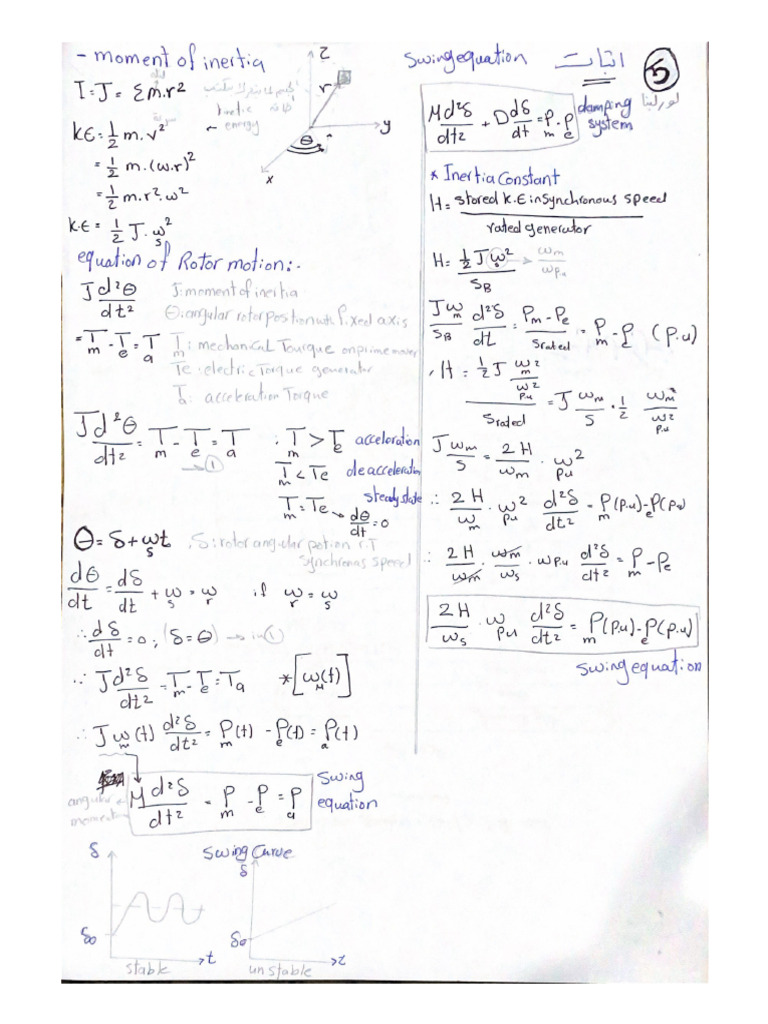 - moment of inertia
I = J = Σ m.r²
K∈ = 1/2 m. v²
← kinetic energy
= 1/2 m. (ω.r)²
= 1/2 m. r². ω²
K.∈ = 1/2 J. ωs²
z
r
y
θ
x
equation of Rotor motion:-
J d²θ/dt²
J: moment of inertia
θ: angular rotor postion with fixed axis
= Tm - Te = Ta
Tm: mechanical Tourque on prime mover
Te: electric Torque generator
Ta: acceleration Torque
J d²θ/dt² = Tm - Te = Ta → ①
∴ Tm > Te acceleration
Tm < Te deacceleration
Tm = Te → dθ/dt = 0 steady state
θ = δ + ωs t , δ: rotor angular postion r.T
synchronas speed
dθ/dt = dδ/dt + ωs = ωr if ωr = ωs
∴ dδ/dt = 0 ; (δ = θ) → in ①
∵ J d²δ/dt² = Tm - Te = Ta *[ωM(t)]
∴ J ωm(t) d²δ/dt² = Pm(t) - Pe(t) = Pa(t)
angular momentum
M d²δ/dt² = Pm - Pe = Pa
Swing equation
Swing Curve
δ
δo
t
stable
δ
δo
unstable
swing equation اثبات
5
M d²δ/dt² + D dδ/dt = Pm - Pe
damping system
* Inertia Constant
H = stored K.E in Synchronous speed / rated generator
H = 1/2 J ω² / SB → ωm / ωp.u
J ωm / SB d²δ/dt = Pm - Pe / S rated = Pm - Pe (p.u)
, H = 1/2 J ωm² / ωp.u² / S rated = J ωm / S . 1/2 ωm / ωp.u²
J ωm / S = 2H / ωm . ω²pu
∴ 2H / ωm . ω²pu d²δ/dt² = Pm(p.u) - Pe(p.u)
∴ 2H / ωm . ωm / ωs . ωp.u d²δ/dt² = Pm - Pe
2H / ωs . ωp.u d²δ/dt² = Pm(p.u) - Pe(p.u)
swing equation